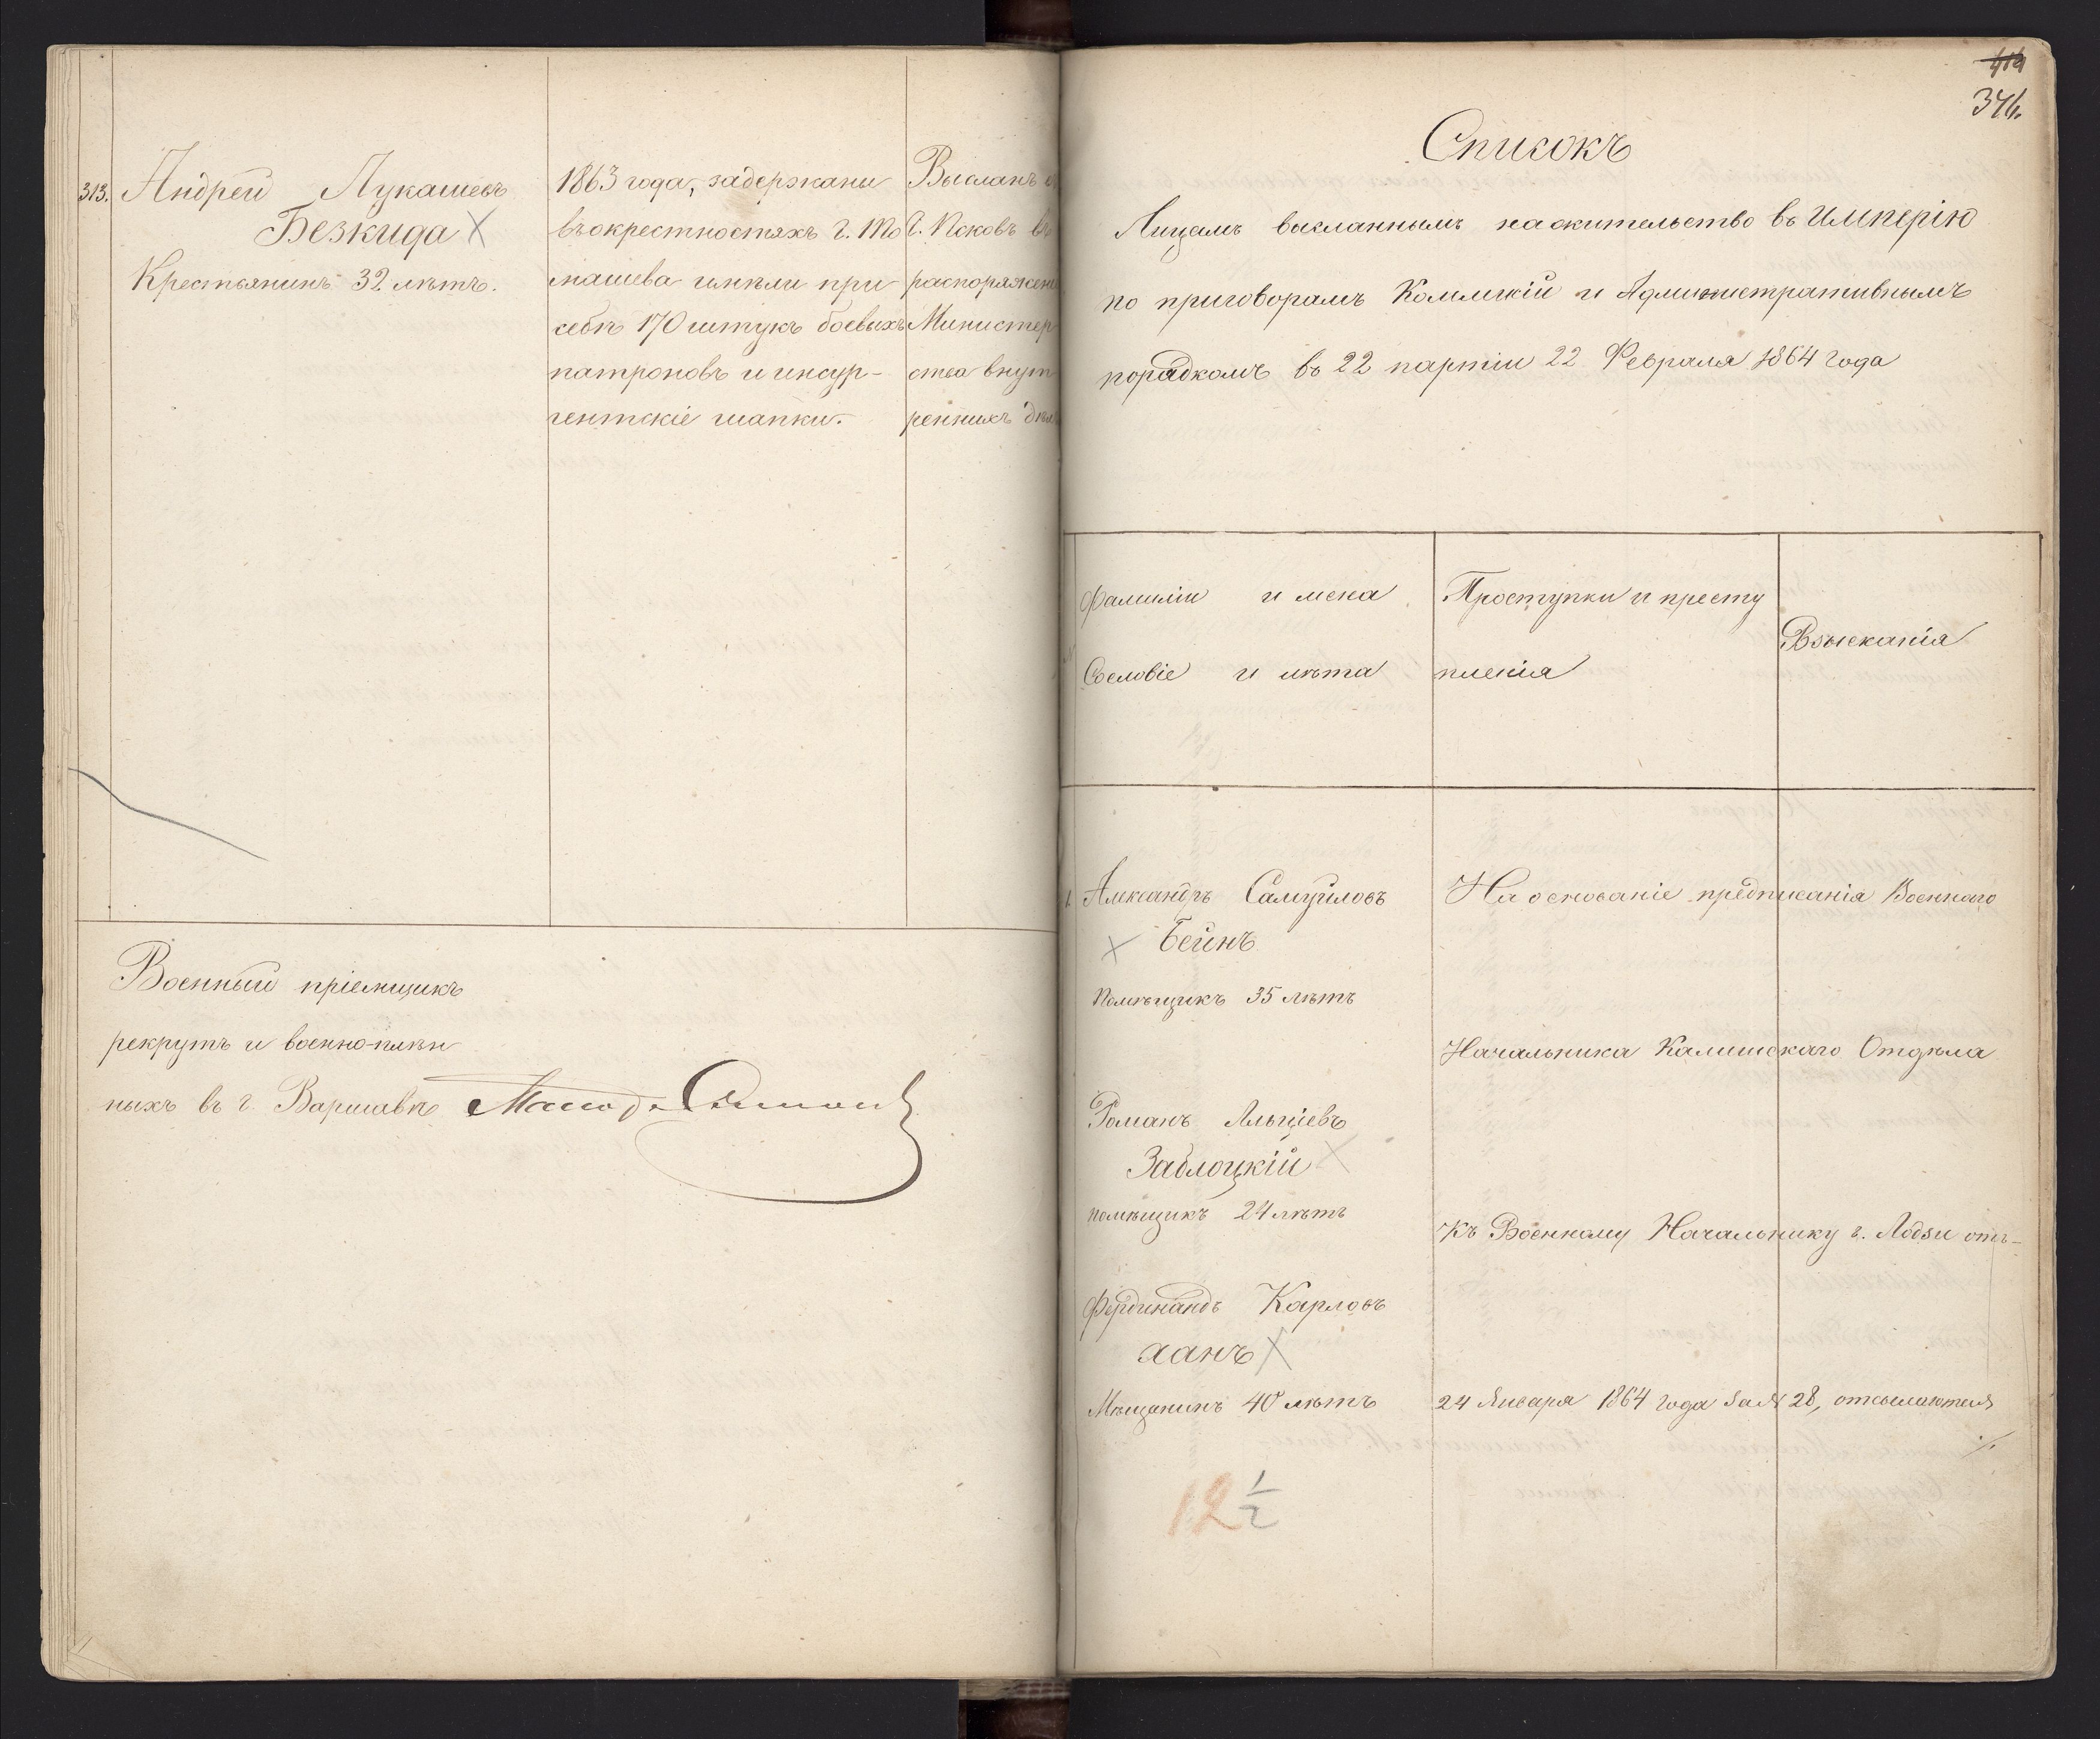 313. Андрей Лукашевъ
Безкида X
Крестьянинъ 32 лѣтъ.
1863 года, задержаны
въ окрестностяхъ г. То
машева имѣли при
себѣ 170 штукъ боевыхъ
патроновъ и инсур-
гентскіе шапки.
Высланъ
г. Псковъ въ
распоряжен
Министер
ства внут
реннихъ дѣл
Военный пріемщикъ
рекрутъ и военно-плѣн
ныхъ въ г. Варшавѣ
414
346.
Списокъ
Лицамъ высланнымъ на жительство въ Имперію
по приговорамъ Коммисій и Административнымъ
порядкомъ въ 22 партіи 22 Февраля 1864 года
Фамиліи имена
Сословіе и лѣта
Проступки и престу
пленія
Взысканія
1. Александръ Самуиловъ
X Бейнъ
Помѣщикъ 35 лѣтъ
Романъ Альціевъ
Заблоцкій X
помѣщикъ 24 лѣтъ
Фердинандъ Карловъ
Ханъ X
Мѣщанинъ 40 лѣтъ
На основаніе предписанія Военнаго
Начальника Калишскаго Отдѣла
Къ Военному Начальнику г. Лодзи отъ-
24 Января 1864 года за № 28, отсылаются
./.
12 1/2